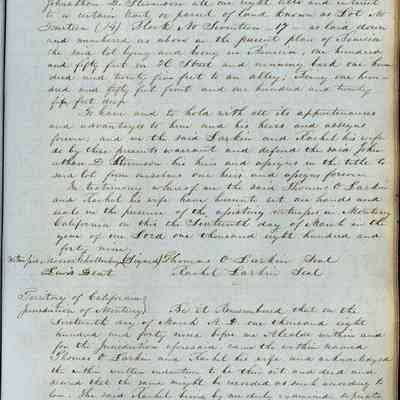 Johnathan D. Stevenson all our right title and interest
to a certain tract or parcel of land known as Lot No
Fourteen (14) Block No Seventeen 17 as laid down
and numbered as above on the present plan of Benicia
the said lot lying and being in Benicia, one hundred
and fifty feet on St Street and running back one hun-
dred and twenty five feet to an alley; Being one hun-
dred and fifty feet front and one hundred and twenty
five feet deep
To have and to hold with all its appurtenances
and advantages to him and his heirs and assigns
forever, and we the said Larkin and Rachel his wife
do by these presents warrant and defend the said John-
athan D Stevenson his heirs and assigns in the title to
said lot from ourselves our heirs and assigns forever.
In testimony whereof we the said Thomas O Larkin
and Rachel his wife have hereunto set our hands and
seals in the presence of the aforesaid witnesses in Monterey
California on this the Seventeenth day of March in the
year of our Lord one thousand eight hundred and
forty nine
Witnesses (Signed) Thomas O Larkin Seal
Lewis Dent Rachel Larkin Seal
Territory of California
Jurisdiction of Monterey Be it Remembered that on the
Seventeenth day of March A D. one thousand eight
hundred and forty nine before me Alcalde within and
for the Jurisdiction aforesaid came the within named
Thomas O Larkin and Rachel his wife and acknowledged
the within written indenture to be their act and deed and
desired that the same might be recorded as such according to
law. The said Rachel being by me duly examined separate